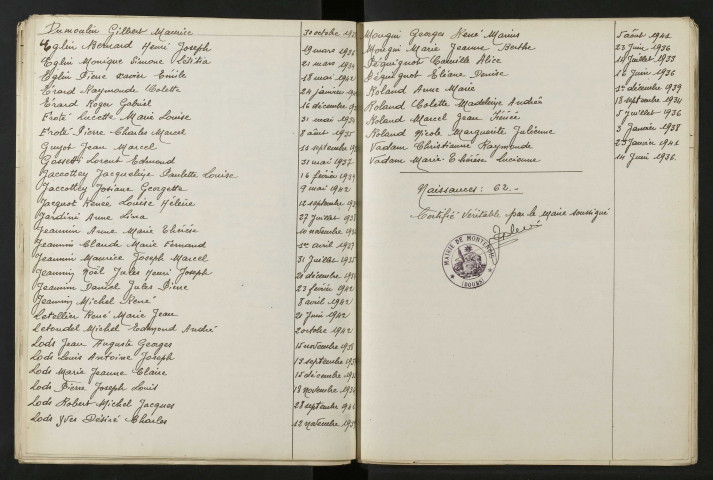 Dumoulin Gilbert Maurice 30 octobre
Eglin Bernard Henri Joseph 19 mars
Eglin Monique Simone 21 mars
Eglin Pierre Xavier Emile 18 mai 1942
Erard Raymonde Colette 24 janvier
Erard Roger Gabriel 16 décembre
Froté Lucette Marie Louise 31 mai
Froté Pierre Charles Marcel 8 août 1935
Guyot Jean Marcel 11 septembre
Florent Edmond 31 mai 1937
Jaccottey Jacqueline Paulette Louise 16 février
Jaccottey Josiane Georgette 9 mai 1942
Jacquot Renée Louise Hélène 12 septembre
Jardini Anne Lina 27 juillet
Jeannin Anne Marie Thérèse 10 novembre
Jeannin Claude Marie Fernand 1er avril 1937
Jeannin Maurice Joseph Marcel 31 juillet 1935
Jeannin Noël Jules Henri Joseph 20 décembre
Jeannin Daniel Jules Pierre 23 février 1942
Jeannin Michel René 8 avril 1942
Letellier René Marie Jean 21 juin 1942
Letondel Michel Edmond André 2 octobre 1942
Lods Jean Auguste Georges 15 novembre
Lods Louis Antoine Joseph 19 septembre
Lods Marie Jeanne Claire 15 décembre
Lods Pierre Joseph Louis 18 novembre
Lods Robert Michel Jacques 28 septembre
Lods Yves Désiré Charles 12 novembre
Mougin Georges René Marius 5 août 1941
Mougin Marie Jeanne Berthe 23 Juin 1936
Péquignot Camille Alice 14 juillet 1933
Péquignot Eliane Denise 16 juin 1936
Roland Anne Marie 1er décembre 1939
Roland Colette Madeleine Andrée 18 septembre 1934
Roland Marcel Jean 5 juillet 1936
Roland Nicole Marguerite Julienne 3 janvier 1938
Vadam Christianne Raymonde 25 janvier 1941
Vadam Marie Thérèse Lucienne 14 juin 1936
Naissances : 62.-
Certifié véritable par le maire soussigné
MAIRIE DE
(DOUBS)